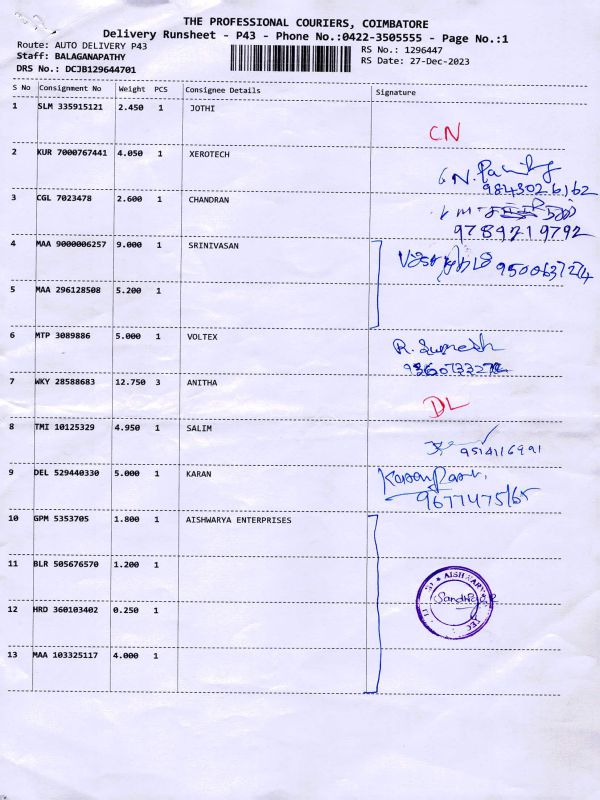 THE PROFESSIONAL COURIERS, COIMBATORE
Delivery Runsheet - P43 - Phone No.:0422-3505555 - Page No.:1
Route: AUTO DELIVERY P43 RS No.: 1296447
Staff: BALAGANAPATHY RS Date: 27-Dec-2023
DRS No.: DCJB129644701
S No Consignment No Weight PCS Consignee Details Signature
1 SLM 335915121 2.450 1 JOTHI
CN
2 KUR 7000767441 4.050 1 XEROTECH
9843026162
3 CGL 7023478 2.600 1 CHANDRAN
9789219792
4 MAA 9000006257 9.000 1 SRINIVASAN
5 MAA 296128508 5.200 1
6 MTP 3089886 5.000 1 VOLTEX
R. Sumesh
7 WKY 28588683 12.750 3 ANITHA
DL
8 TMI 10125329 4.950 1 SALIM
9514116991
9 DEL 529440330 5.000 1 KARAN
9677475165
10 GPM 5353705 1.800 1 AISHWARYA ENTERPRISES
11 BLR 505676570 1.200 1
12 HRD 360103402 0.250 1
13 MAA 103325117 4.000 1